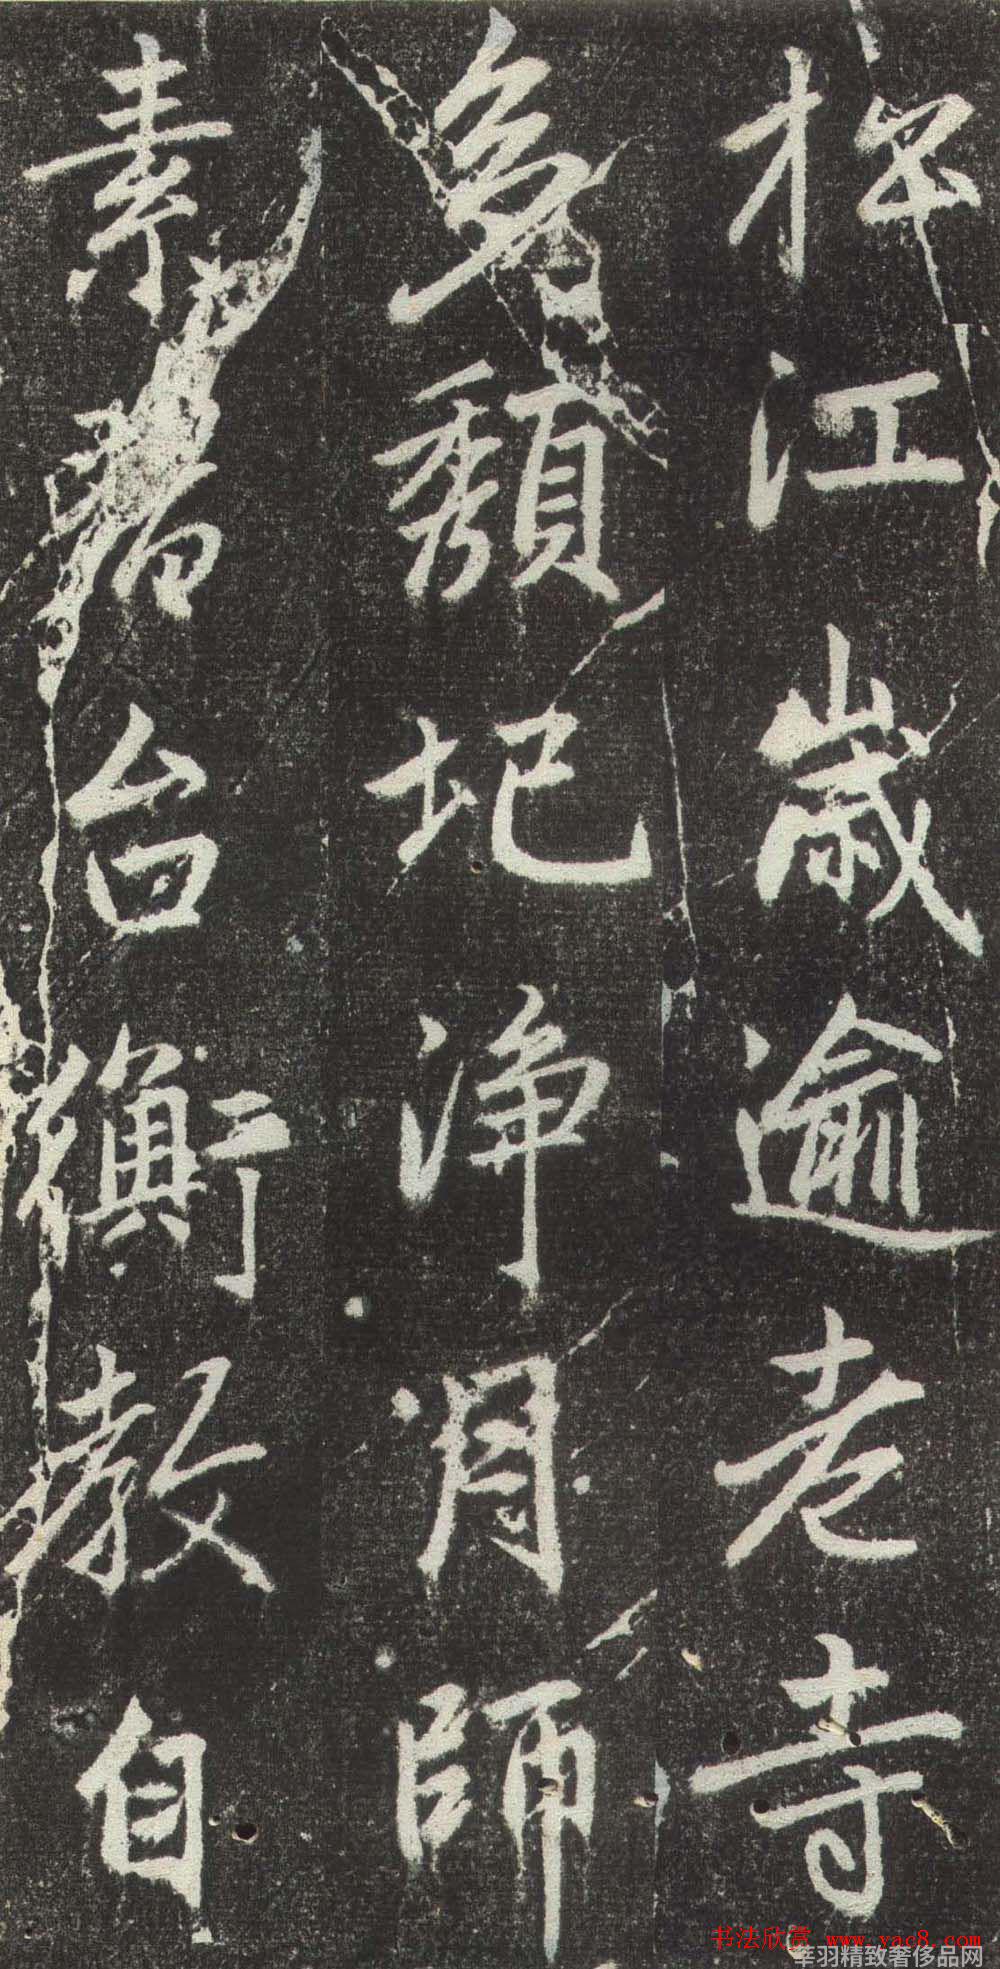 松江歲逾老寺
多頹圮淨月師
素習台衡教自
书法欣赏 www.yac8.com
莘羽精致奢侈品网